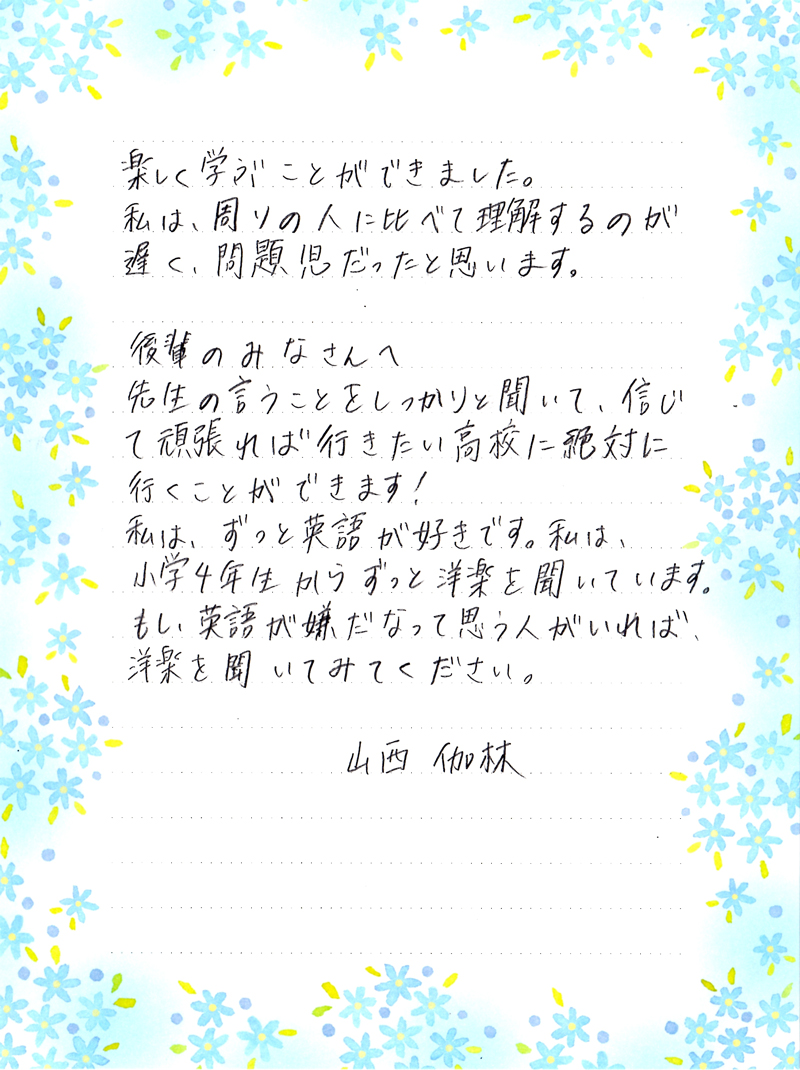 楽しく学ぶことができました。
私は、周りの人に比べて理解するのが
遅く、問題児だったと思います。
後輩のみなさんへ
先生の言うことをしっかりと聞いて、信じ
て頑張れば行きたい高校に絶対に
行くことができます!
私は、ずっと英語が好きです。私は、
小学4年生からずっと洋楽を聞いています。
もし、英語が嫌だなって思う人がいれば、
洋楽を聞いてみてください。
山西 伽林